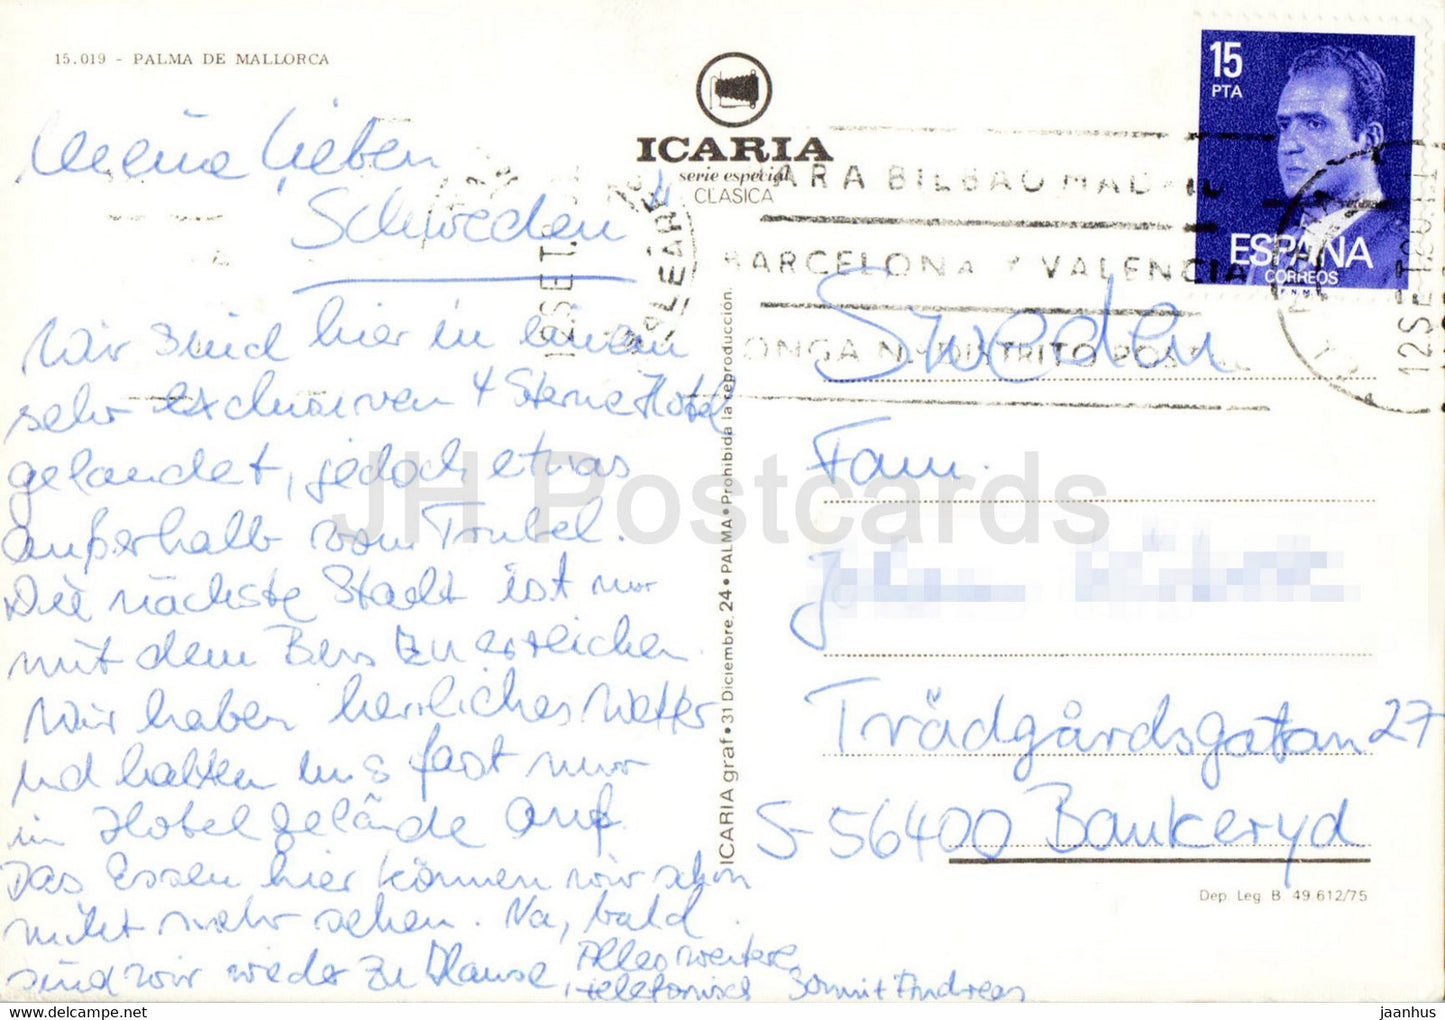 15.019 - PALMA DE MALLORCA
ICARIA
serie especial
CLASICA
15
PTA
ESPAÑA
CORREOS
F.N.M.T.
BILBAO MADRID
BARCELONA Y VALENCIA
PONGA N.º DISTRITO POSTAL
12 SET.
BALEARES
12 SE
Meine Lieben
Schweden!
Wir sind hier in einem
sehr exclusiven 4 Sterne Hotel
gelandet, jedoch etwas
außerhalb vom Trubel.
Die nächste Stadt ist nur
mit dem Bus zu erreichen.
Wir haben herrliches Wetter
und halten uns fast nur
im Hotelgelände auf.
Das Essen hier können wir schon
nicht mehr sehen. Na, bald
sind wir wieder zu Hause,
Alles weitere
telefonisch
Sweden
Fam.
Trädgårdsgatan 27
S-56400 Bankeryd
ICARIA graf • 31 Diciembre, 24 • PALMA • Prohibida la reproducción.
Dep. Leg. B. 49.612/75
JH Postcards
https://jhpostcards.com
jaanhus